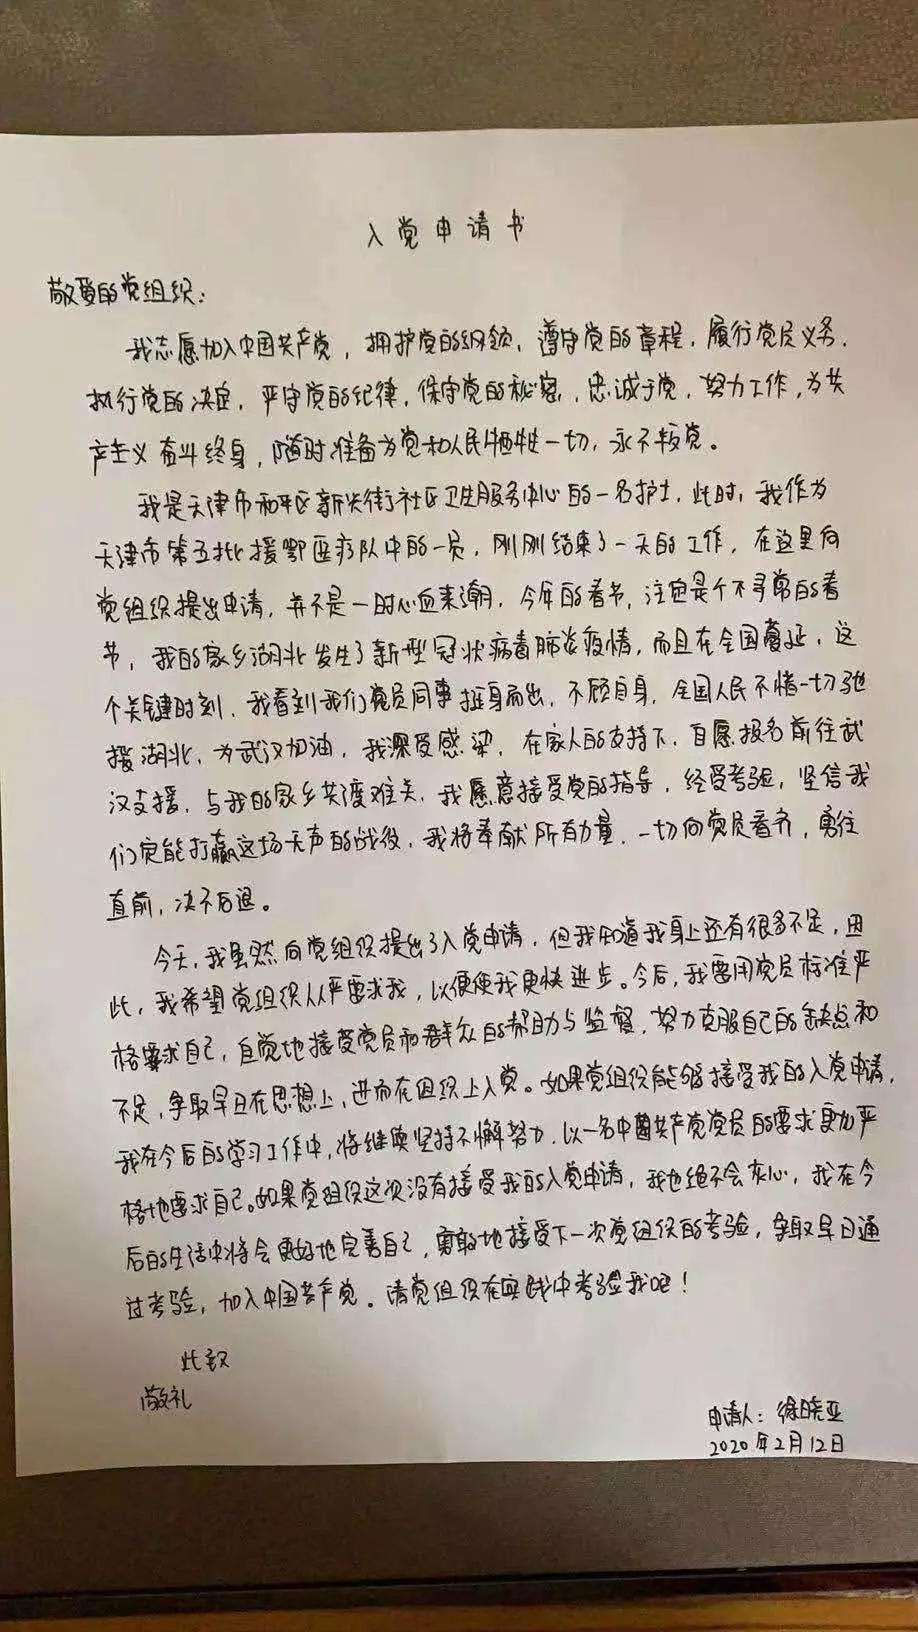 入党申请书
敬爱的党组织：
我志愿加入中国共产党，拥护党的纲领，遵守党的章程，履行党员义务，
执行党的决定，严守党的纪律，保守党的秘密，忠诚于党，努力工作，为共
产主义奋斗终身，随时准备为党和人民牺牲一切，永不叛党。
我是天津市和平区新兴街社区卫生服务中心的一名护士，此时，我作为
天津市第五批援鄂医疗队中的一员，刚刚结束了一天的工作，在这里向
党组织提出申请，并不是一时心血来潮，今年的春节，注定是个不寻常的春
节，我的家乡湖北发生了新型冠状病毒肺炎疫情，而且在全国蔓延，这
个关键时刻，我看到我们党员同事挺身而出，不顾自身，全国人民不惜一切驰
援湖北，为武汉加油，我深受感染，在家人的支持下，自愿报名前往武
汉支援，与我的家乡共渡难关，我愿意接受党的指导，经受考验，坚信我
们定能打赢这场无声的战役，我将奉献所有力量，一切向党员看齐，勇往
直前，决不后退。
今天，我虽然向党组织提出了入党申请，但我知道我身上还有很多不足，因
此，我希望党组织从严要求我，以便使我更快进步。今后，我要用党员标准严
格要求自己，自觉地接受党员和群众的帮助与监督，努力克服自己的缺点和
不足，争取早日在思想上，进而在组织上入党。如果党组织能够接受我的入党申请，
我在今后的学习工作中，将继续坚持不懈努力，以一名中国共产党党员的要求更加严
格地要求自己。如果党组织这次没有接受我的入党申请，我也绝不会灰心，我在今
后的生活中将会更好地完善自己，勇敢地接受下一次党组织的考验，争取早日通
过考验，加入中国共产党。请党组织在实践中考验我吧！
此致
敬礼
申请人：徐晓亚
2020年2月12日